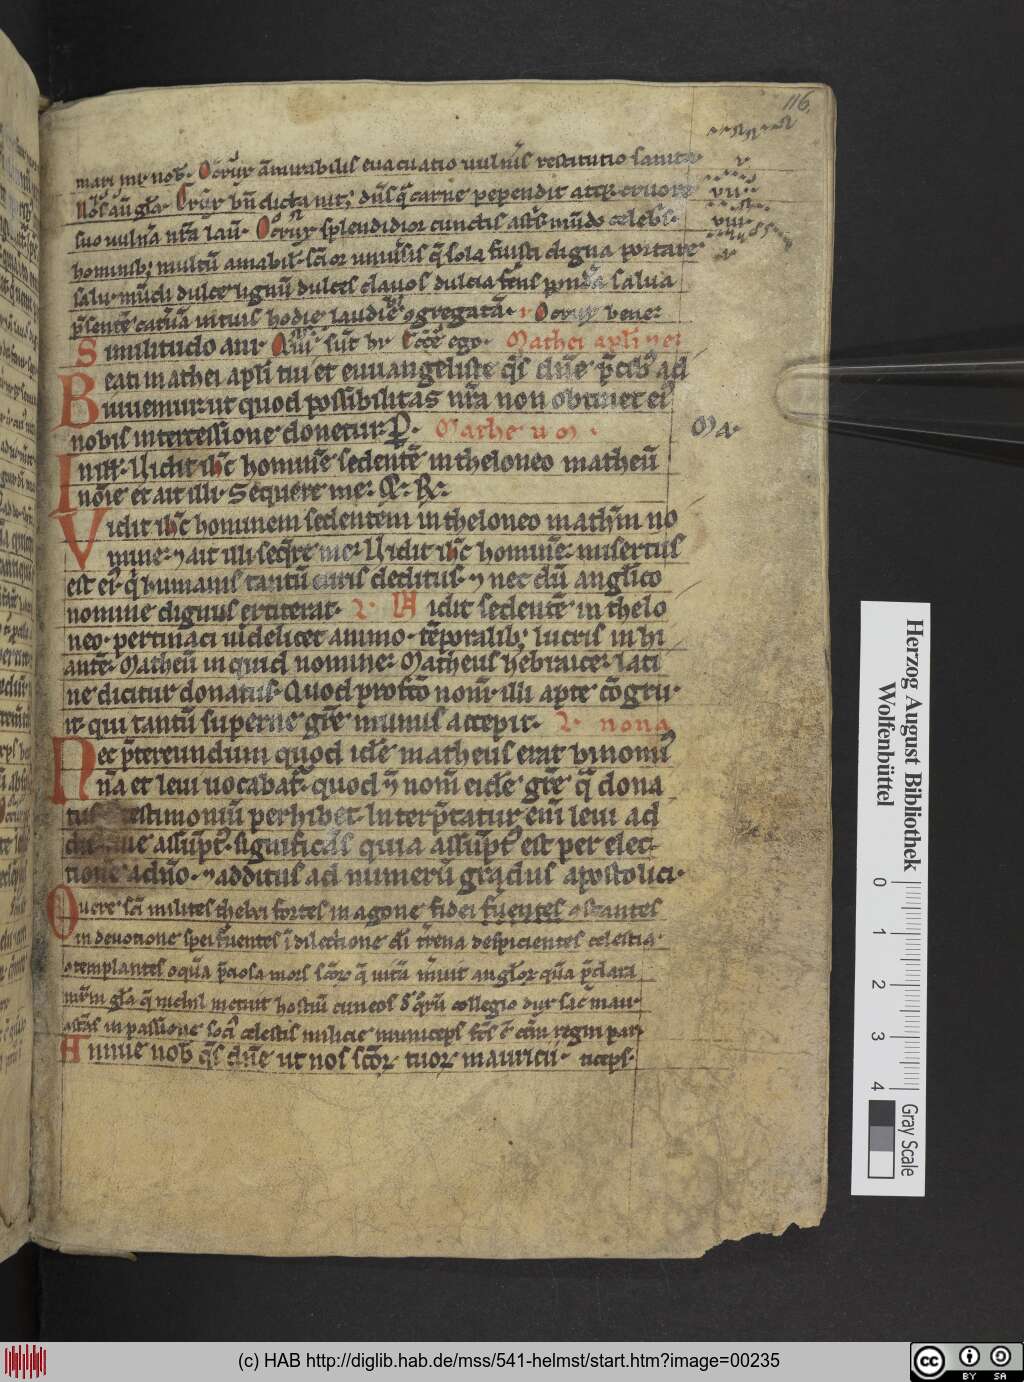 116
mari in nob. O crux ammirabilis euacuatio uulnis restitutio sanita
Nos aū gła. Crux bn dicta nit; dns q̄ carne pependit atq; cruore
suo uulna nr̄a lau. O crux splendidior cunctis astris mūdo celebs.
hominib; multū amabil. sc̄ior uniusis q̄ sola fuisti digna portare
talu mūdi dulce lignū dulces clauos dulcia fens pondā salua
p̄sentē cat̄uā in tuis hodie laudib ogregatā. O crux bene
Similitudo ani. sūt hr. Ecce ego. Mathei apli
Beati mathei apli tui et euuangeliste q̄s dn̄e p̄cib ad
iuuemur: ut quod possibilitas nr̄a non obtinet ei
nobis intercessione donetur. P. Matheum.
Ma.
In ill. Uidit ih̄c hominē sedentē in theloneo matheū
noīe et ait illi. Sequere me. Q. R.
Vidit ih̄c hominem sedentem in theloneo math̄m no
mine. ⁊ ait illi. seq̄re me. Uidit ih̄c hominē. misertus
est ei. q humanis tantū curis deditus. ⁊ nec dū anglico
nomine dignus extiterat. Uidit sedentē in thelo
neo. pertinaci uidelicet animo. tēporalib; lucris inhi
antē. Matheū inquid nomine. Matheus hebraice. lati
ne dicitur donatus. Quod profcto nom̄. illi apte cōgru
it. qui tantū superne gr̄e munus accepit. nona
Nec p̄tereundum quod idē matheus erat binomi
nā et leui uocabat. quod ⁊ nom̄ eidē gr̄e q̄ dona
tus testimoniū perhibet. Interp̄tatur eni leui ad
assūpt. significās quia assūpt est per elec
tionē a dn̄o. ⁊ additus ad numerū gradus apostolici.
O uere sc̄i milites thebei fortes in agone fidei fuentes ostantes
in deuotione spei fuentes ī dilectione dī tr̄rena despicientes celestia.
otemplantes o quā p̄ciosa mors sc̄or q̄ uitā m̄uit anglor quā p̄clara
mr̄m gła q̄ nichil metuit hostiū cuneos collegio dux sāc mau
astās in passione soci celestis milicie municeps regni par
ticeps.
Annue nob q̄s dn̄e ut nos sc̄or tuor mauricii.
Herzog August Bibliothek
Wolfenbüttel
0 1 2 3 4
Gray Scale
(c) HAB http://diglib.hab.de/mss/541-helmst/start.htm?image=00235
cc BY SA